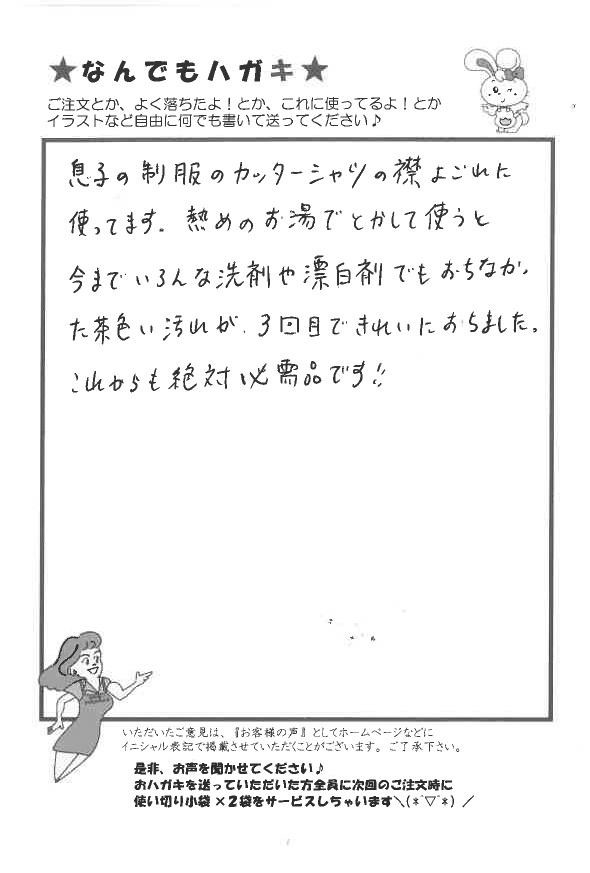 ★なんでもハガキ★
ご注文とか、よく落ちたよ！とか、これに使ってるよ！とか
イラストなど自由に何でも書いて送ってください♪
息子の制服のカッターシャツの襟よごれに
使ってます。熱めのお湯でとかして使うと
今までいろんな洗剤や漂白剤でもおちなかっ
た茶色い汚れが、3回目できれいにおちました。
これからも絶対必需品です!!
いただいたご意見は、『お客様の声』としてホームページなどに
イニシャル表記で掲載させていただくことがございます。ご了承下さい。
是非、お声を聞かせてください♪
おハガキを送っていただいた方全員に次回のご注文時に
使い切り小袋×2袋をサービスしちゃいます＼(*ﾟ▽ﾟ*)／